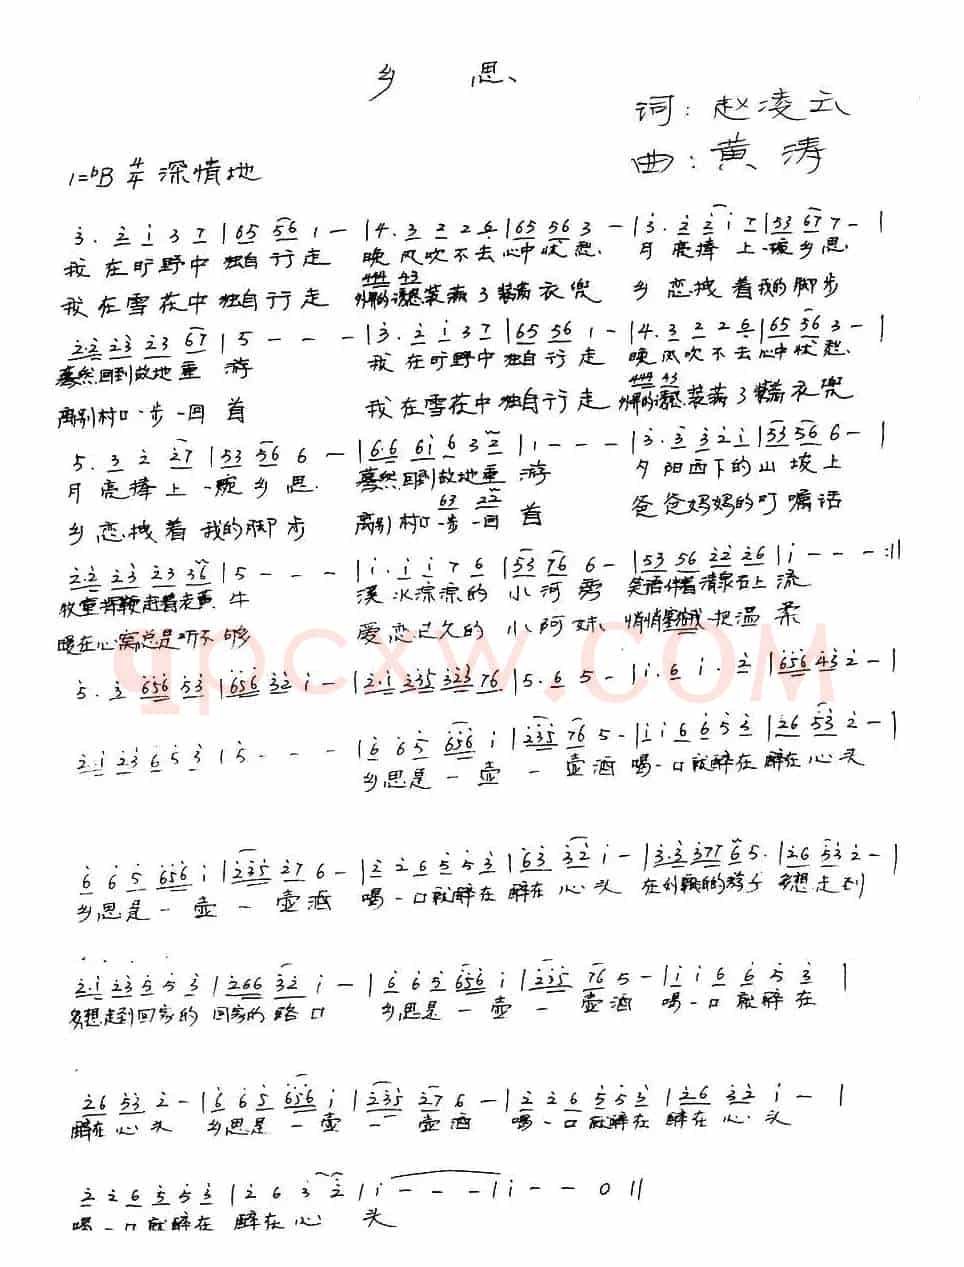 乡 思
词：赵凌云
曲：黄涛
1=bB 4/4 深情地
3. 2 1 3 7 | 65 56 1 - | 4. 3 2 2 6 | 65 56 3 - | 3. 2 2 1 7 | 53 67 7 - |
我在旷野中独自行走 晚风吹不去心中忧愁. 月亮捧上一碗乡思.
我在雪花中独自行走 装满了 衣兜 乡恋拽着我的脚步
2·2 23 23 67 | 5 - - - | 3. 2 1 3 7 | 65 56 1 - | 4. 3 2 2 6 | 65 56 3 - |
蓦然回到故地重 游 我在旷野中独自行走 晚风吹不去心中忧愁.
离别村口一步一回首 我在雪花中独自行走 装满了 衣兜
5. 3 2 27 | 53 56 6 - | 6·6 61 6 3 2 | 1 - - - | 3. 3 3 2 1 | 53 56 6 - |
月亮捧上一碗乡思. 蓦然回到故地重 游 夕阳西下的山坡上
乡恋拽着我的脚步 离别村口一步一回 首 爸爸妈妈的叮嘱话
2·2 23 23 36 | 5 - - - | 1. 1 1 7 6 | 53 76 6 - | 53 56 22 26 | 1 - - - :||
牧童挥鞭赶着老黄牛 溪水淙淙的小河旁 笑语伴着清泉石上流
暖在心窝总是听不够 爱恋已久的小阿妹 悄悄塞给我一把温柔
qpcxw.COM
5. 3 656 53 | 656 32 1 - | 2·1 235 323 76 | 5. 6 5 - | 1. 6 1. 2 | 656 43 2 - |
2·1 23 6 5 3 | 5 - - - | 6 6 5 656 1 | 235 76 5 - | 1 1 6 6 5 3 | 26 53 2 - |
乡思是一壶一壶酒 喝一口就醉在醉在心头
6 6 5 656 1 | 235 27 6 - | 2 2 6 5 5 3 | 63 32 1 - | 3·3 377 6 5. | 26 53 2 - |
乡思是一壶一壶酒 喝一口就醉在醉在心头 在外 的游子 多想走到
2·1 23 5 5 3 | 266 32 1 - | 6 6 5 656 1 | 235 76 5 - | 1 1 6 6 5 3 |
多想走到回家的 回家的路口 乡思是一壶一壶酒 喝一口就醉在
26 53 2 - | 6 6 5 656 1 | 235 27 6 - | 2 2 6 5 5 3 | 26 32 1 - |
醉在心头 乡思是一壶一壶酒 喝一口就醉在醉在心头
2 2 6 5 5 3 | 2 6 3 2 | 1 - - - | 1 - - 0 ||
喝一口就醉在 醉在心 头